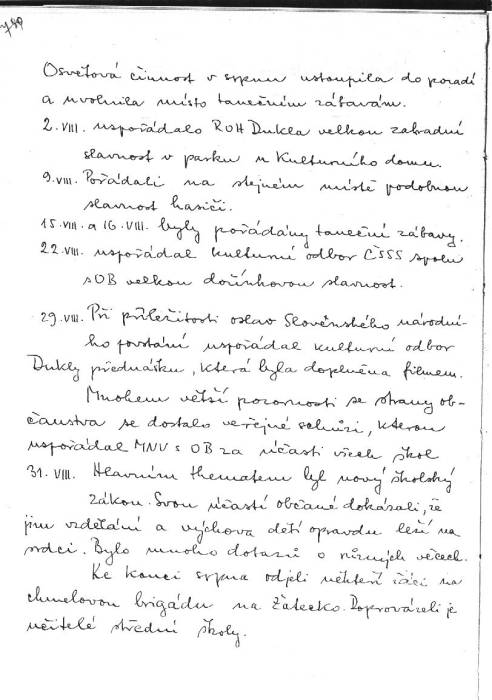 Osvětová činnost v srpnu ustoupila do pozadí
a uvolnila místo tanečním zábavám.
2. VIII. uspořádalo ROH Dukla velkou zahradní
slavnost v parku u Kulturního domu.
9. VIII. Pořádali na stejném místě podobnou
slavnost hasiči.
15. VIII. a 16. VIII. byly pořádány taneční zábavy.
22. VIII. uspořádal kulturní odbor ČSSS spolu
s OB velkou dožínkovou slavnost.
29. VIII. Při příležitosti oslav Slovenského národní-
ho povstání uspořádal kulturní odbor
Dukly přednášku, která byla doplněna filmem.
Mnohem větší pozornosti se strany ob-
čanstva se dostalo veřejné schůzi, kterou
uspořádal MNV s OB za účasti všech škol
31. VIII. Hlavním thematem byl nový školský
zákon. Svou účastí občané dokázali, že
jim vzdělání a výchova dětí opravdu leží na
srdci. Bylo mnoho dotazů o různých věcech.
Ke konci srpna odjeli někteří žáci na
chmelovou brigádu na Žatecko. Doprovázeli je
učitelé střední školy.